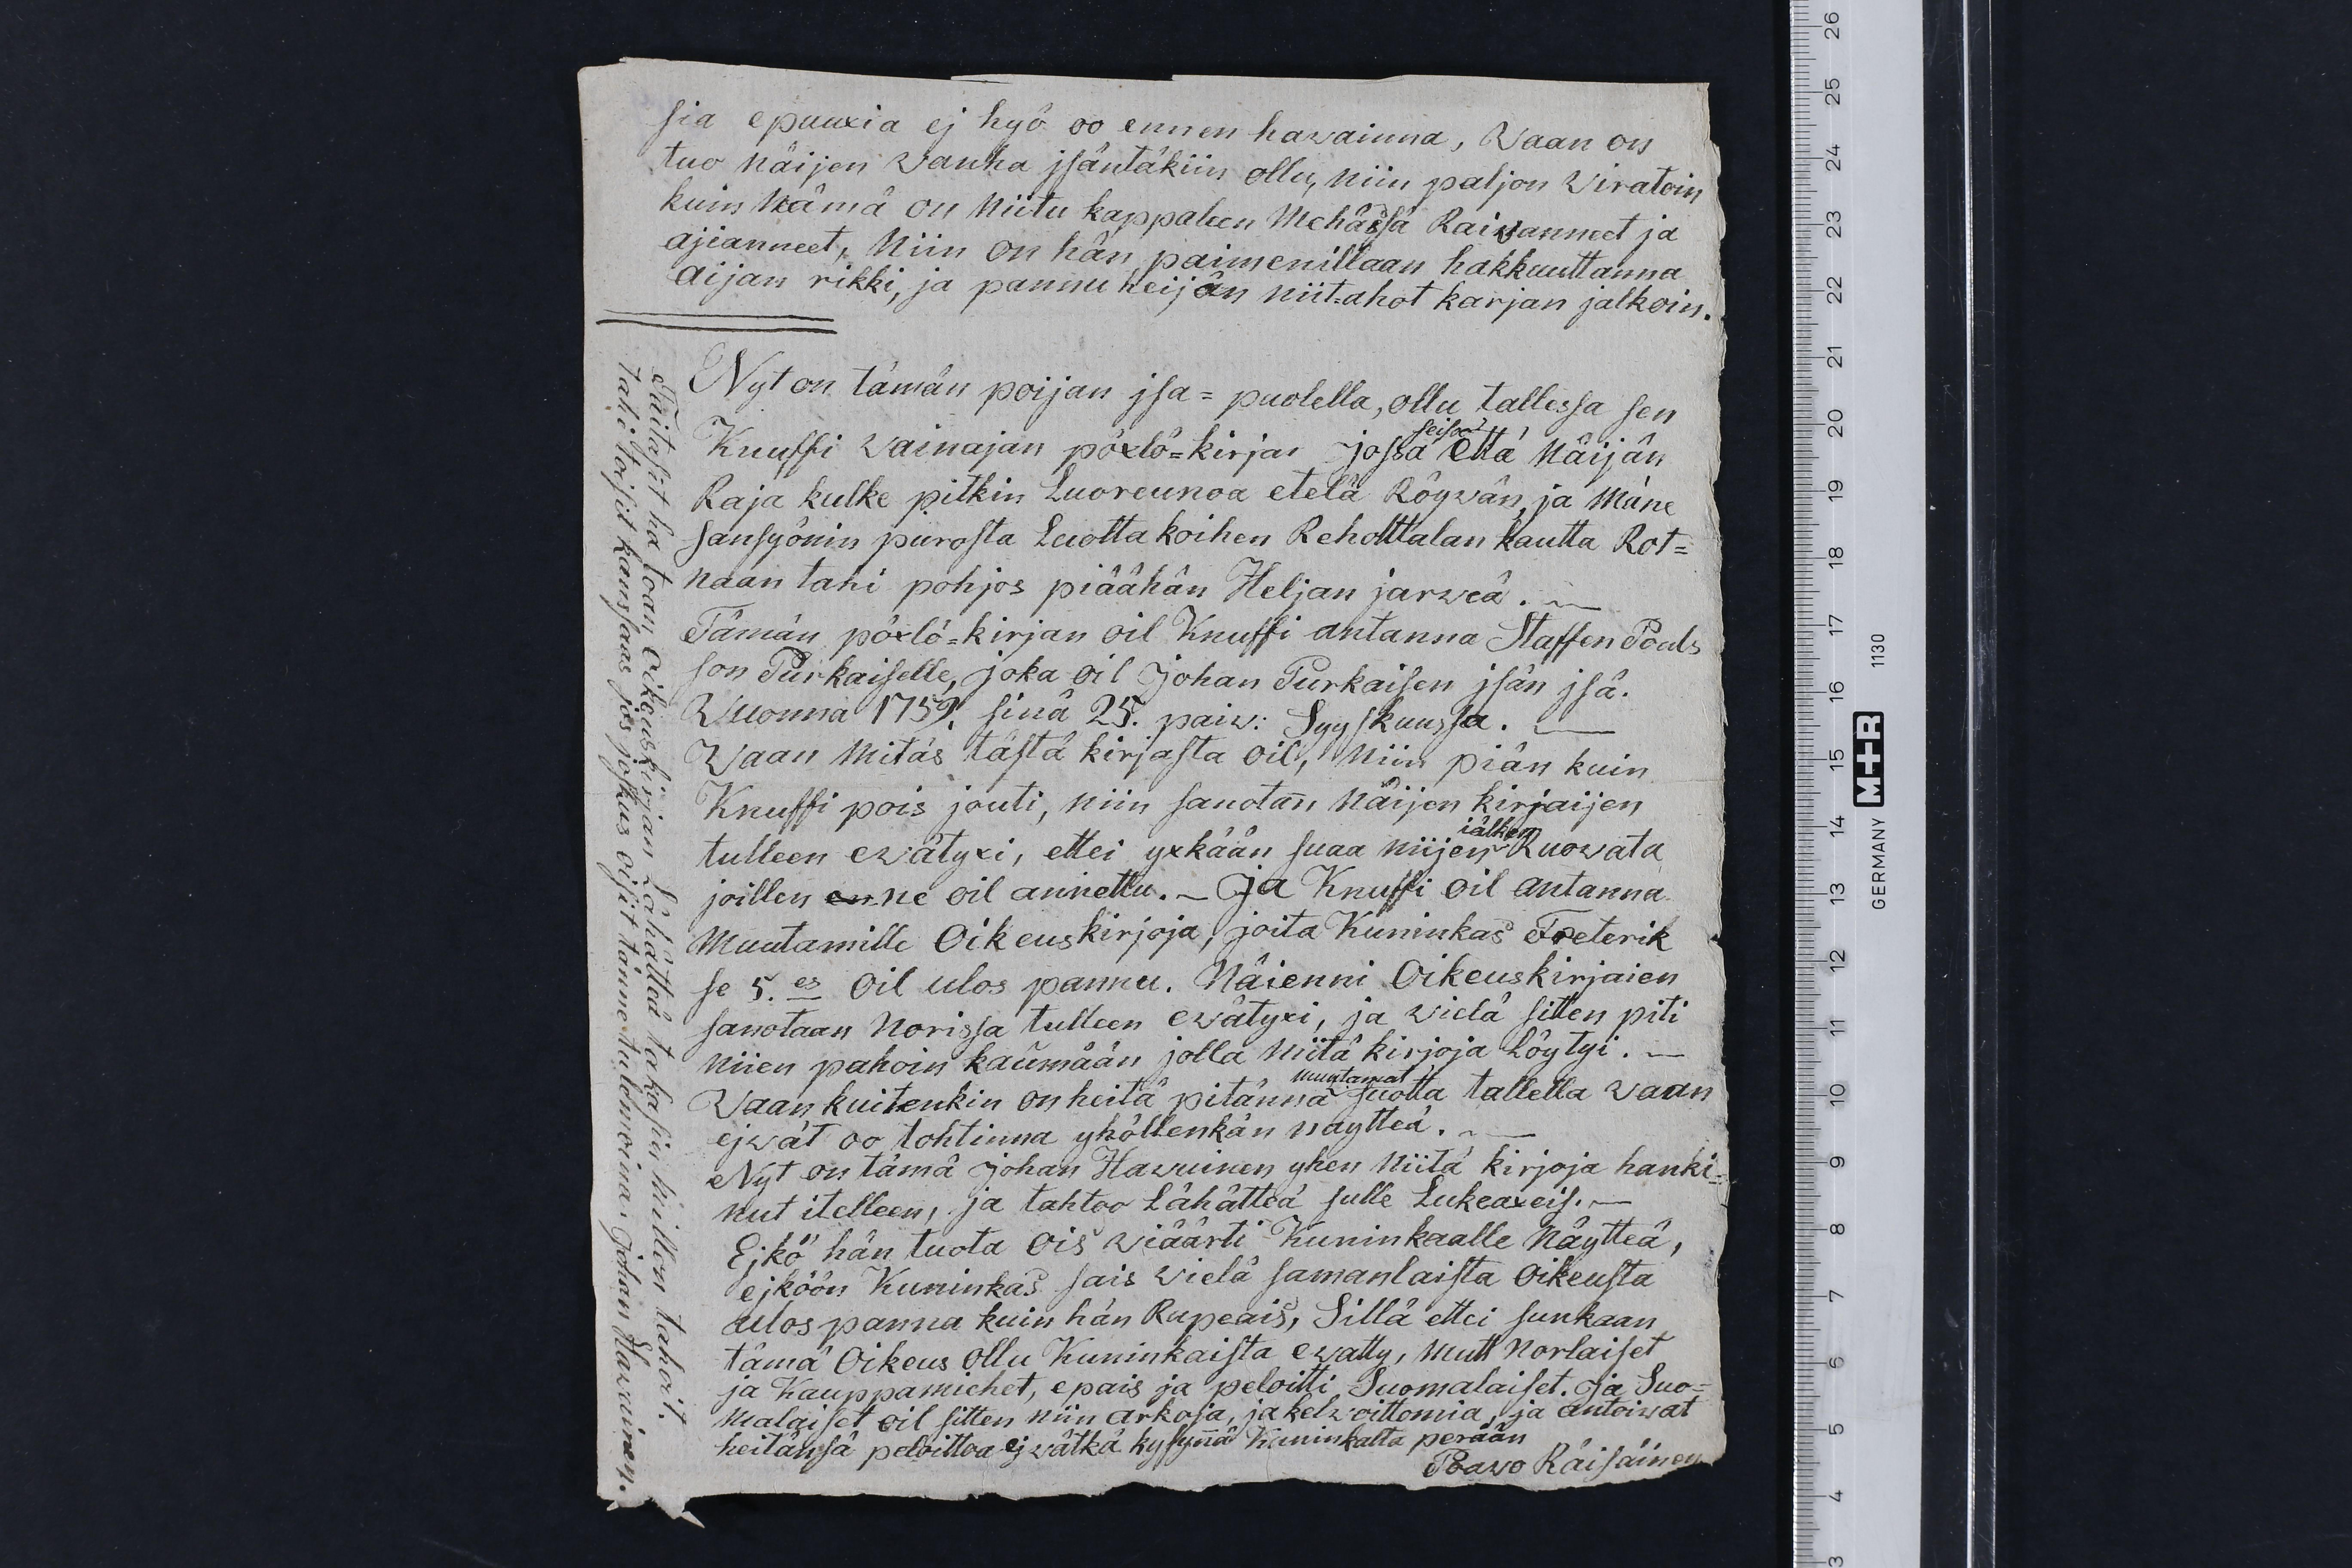 sia epuuxia ej hyö oo ennen hawainna, Waan on
tuo näijen wanha jsäntäkiin ollu, niin paljon Wiratoin
kuin Nämä on Niitu kappaleen Mehässä Raiwanneet ja
ajianneet, Niin on hän paimenillaan hakkuuttanna
aijan rikki, ja pannu heijän niit=ahot karjan jalkoin.
Nyt on tämän poijan jsa=puolella, ollu tallessa sen
Knuffi wainajan pöxlö=kirja jossa seisoo että Näijän
Raja kulke pitkin Luoreunoa etelä Röywän, ja Mäne
sansyönin purosta Luottakoihen Rehottalan kautta Rot=
naan tahi pohjos piäähän Heljan järweä.
Tämän pöxlö=kirjan oil Knuffi antanna Staffen Poals
son Purkaiselle, joka oil Johan Purkaisen jsän jsä.
Wuonna 1759, sinä 25. paiw: Syyskuussa.
Waan Mitäs tästä kirjasta oil, Niin piän kuin
Knuffi pois jouti, niin sanotan Näijen kirjaijen
tulleen ewätyxi, ettei yxkään suaa niijen jälken Ruowata
joillen en ne oil annettu. – Ja Knuffi oil antanna
Muutamille Oikeuskirjoja, joita Kuninkas Freterik
se 5.es Oil ulos pannu. Näienni Oikeuskirjaien
sanotaan Norissa tulleen ewätyxi, ja wielä sitten piti
niien pahoin käumään jolla Niitä kirjoja Löytyi. –
Waan kuitenkin on heitä pitännä muutamat suotta tallella waan
ejwät oo tohtinna yhöllenkän näytteä.
Nyt on tämä Johan Hawuinen yhen Niitä kirjoja hanki=
nut itelleen, ja tahtoo Lähätteä sulle Lukeaxeis. –
Ejkö hän tuota ois wiäärti Kuninkaalle Näytteä,
ejköön Kuninkas sais wielä samanlaista Oikeusta
ulos panna kuin hän Rupeais, Sillä ettei sunkaan
tämä Oikeus Ollu Kuninkaista ewatty, Mutt Norlaiset
ja Kauppamiehet, epais ja peloitti Suomalaiset. Ja Suo=
malaiset oil sitten niin arkoja, ja kelwoittomia, ja antoiwat
heitänsä peloittaa ejwätkä kysynnä Kuninkalta perään
Poawo Räisäinen
Taitasit ha toan Oikeuskirjan Lähätteä takasin meillen tahoit.
tahi toisit kanssaas jos joskus oisit tänne tulomoina. Johan Hawuinen.
26
25
24
23
22
21
20
19
18
17
16
15
14
13
12
11
10
9
8
7
6
5
4
3
GERMANY M+R 1130